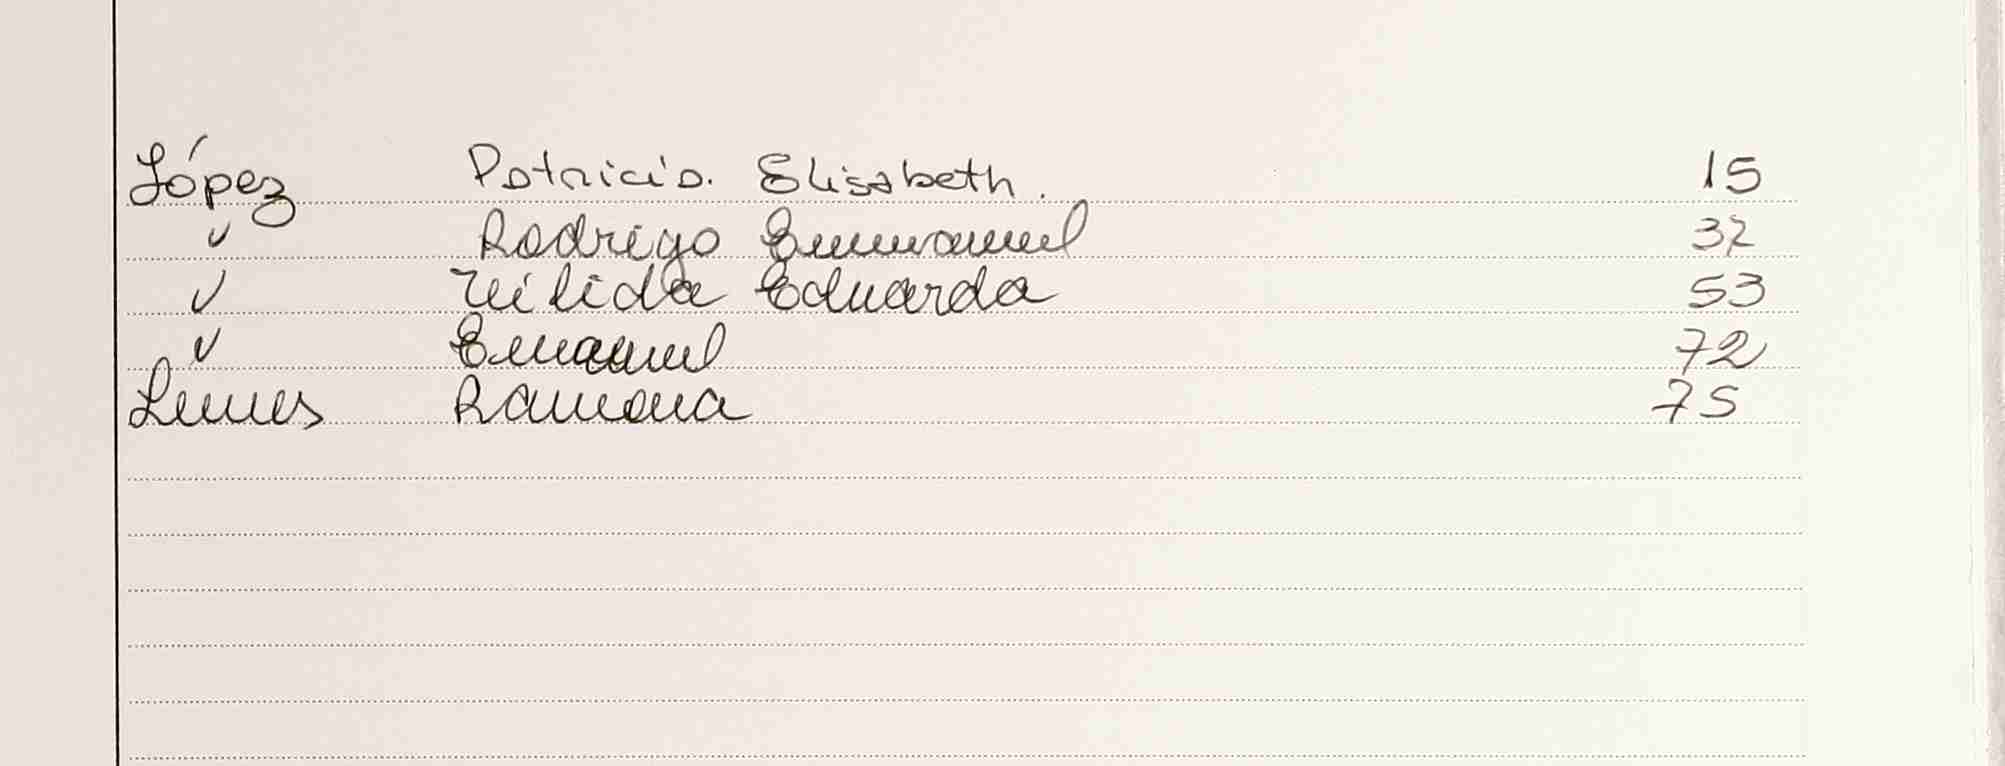 López Patricia. Elisabeth. 15
✓ Rodrigo Emmanuel 32
✓ Eduarda 53
✓ Emanuel 72
Lemes Ramona 75